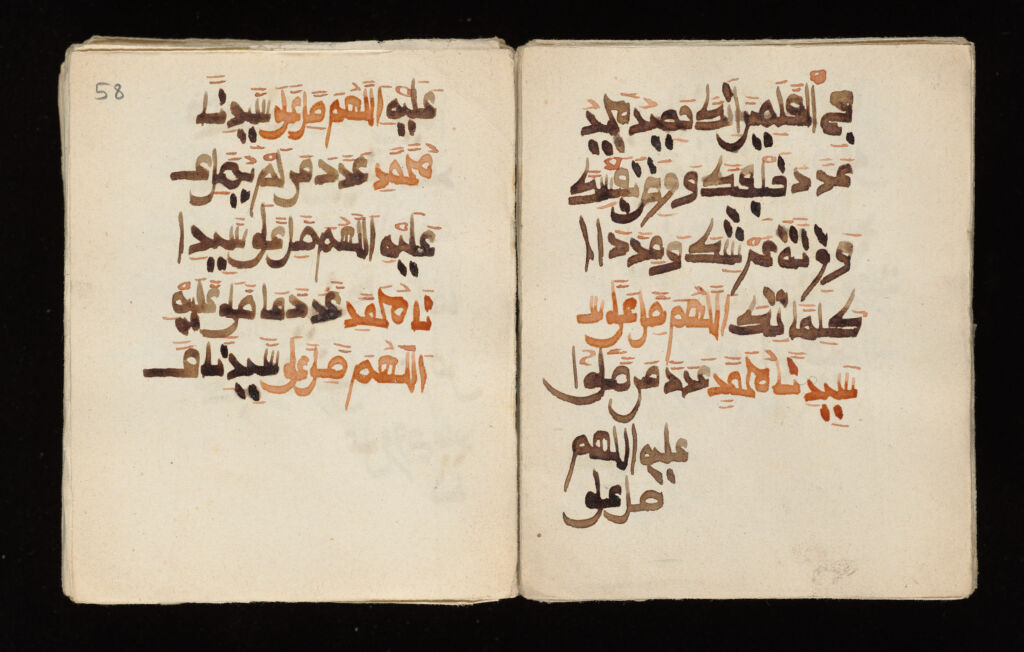 في العلمين انك حميد مجيد
عدد خلقك ورضى نفسك
وزنة عرشك ومداد
كلماتك اللهم صل على
سيدنا محمد عدد من صلوا
عليه اللهم
صل على
58
عليه اللهم صل على سيدنا
محمد عدد من لم يصل
عليه اللهم صل على سيد
نا محمد عدد ما صلى عليه
اللهم صل على سيدنا